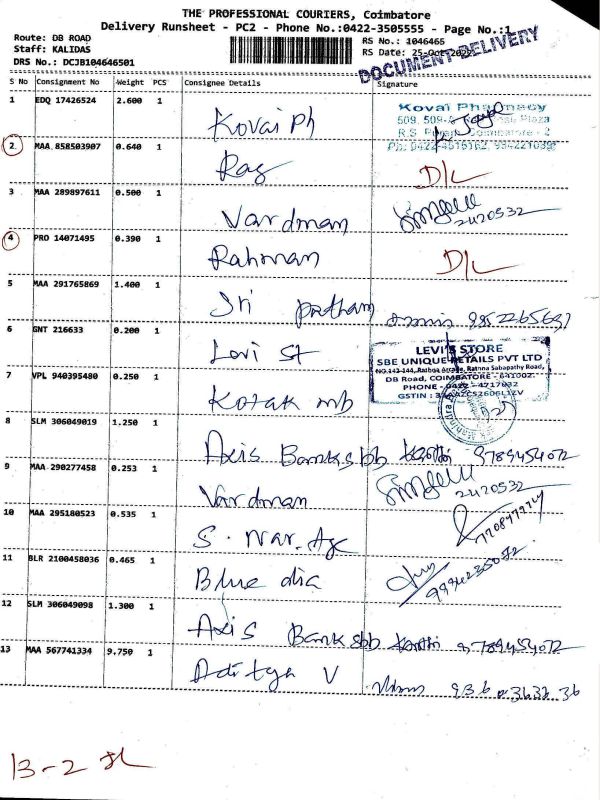 THE PROFESSIONAL COURIERS, Coimbatore
Delivery Runsheet - PC2 - Phone No.:0422-3505555 - Page No.:1
Route: DB ROAD
Staff: KALIDAS
DRS No.: DCJB104646501
RS No.: 1046465
RS Date: 25-Oct-202
DOCUMENT DELIVERY
S No Consignment No Weight PCS Consignee Details Signature
1 EDQ 17426524 2.600 1 Kovai Ph
Kovai Pharmacy
Coimbatore - 2
2 MAA 858503907 0.640 1 Rag D/L
3 MAA 289897611 0.500 1 Vardman 2420532
4 PRO 14071495 0.390 1 Rahman D/L
5 MAA 291765869 1.400 1 Sri Pratham
6 GNT 216633 0.200 1 Levi St
LEVI'S STORE
SBE UNIQUE RETAILS PVT LTD
NO.142-144, Rathna Arcade, Ratnna Sabapathy Road,
DB Road, COIMBATORE - 641002.
PHONE - 0422 - 4717032
7 VPL 940395480 0.250 1 Kotak mb
8 SLM 306049019 1.250 1 Axis Bank sbb 9789454072
9 MAA 290277458 0.253 1 Vardman 2420532
10 MAA 295180523 0.535 1 S. Nar. Age
11 BLR 2100458036 0.465 1 Blue dia
12 SLM 306049098 1.300 1 Axis Bank sbb 9789454072
13 MAA 567741334 9.750 1 Aditya V
13-2